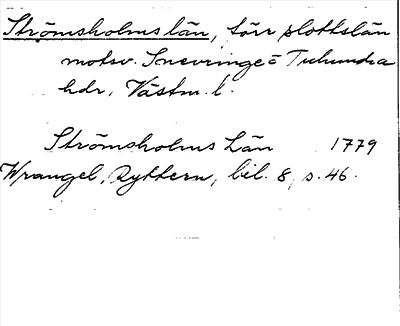 Strömsholms län, förr slottslän
motsv. Snevringe o Tuhundra
hdr, Västm. l.
Strömsholms Län 1779
Wrangel, Rytterne, bil. 8, s. 46.